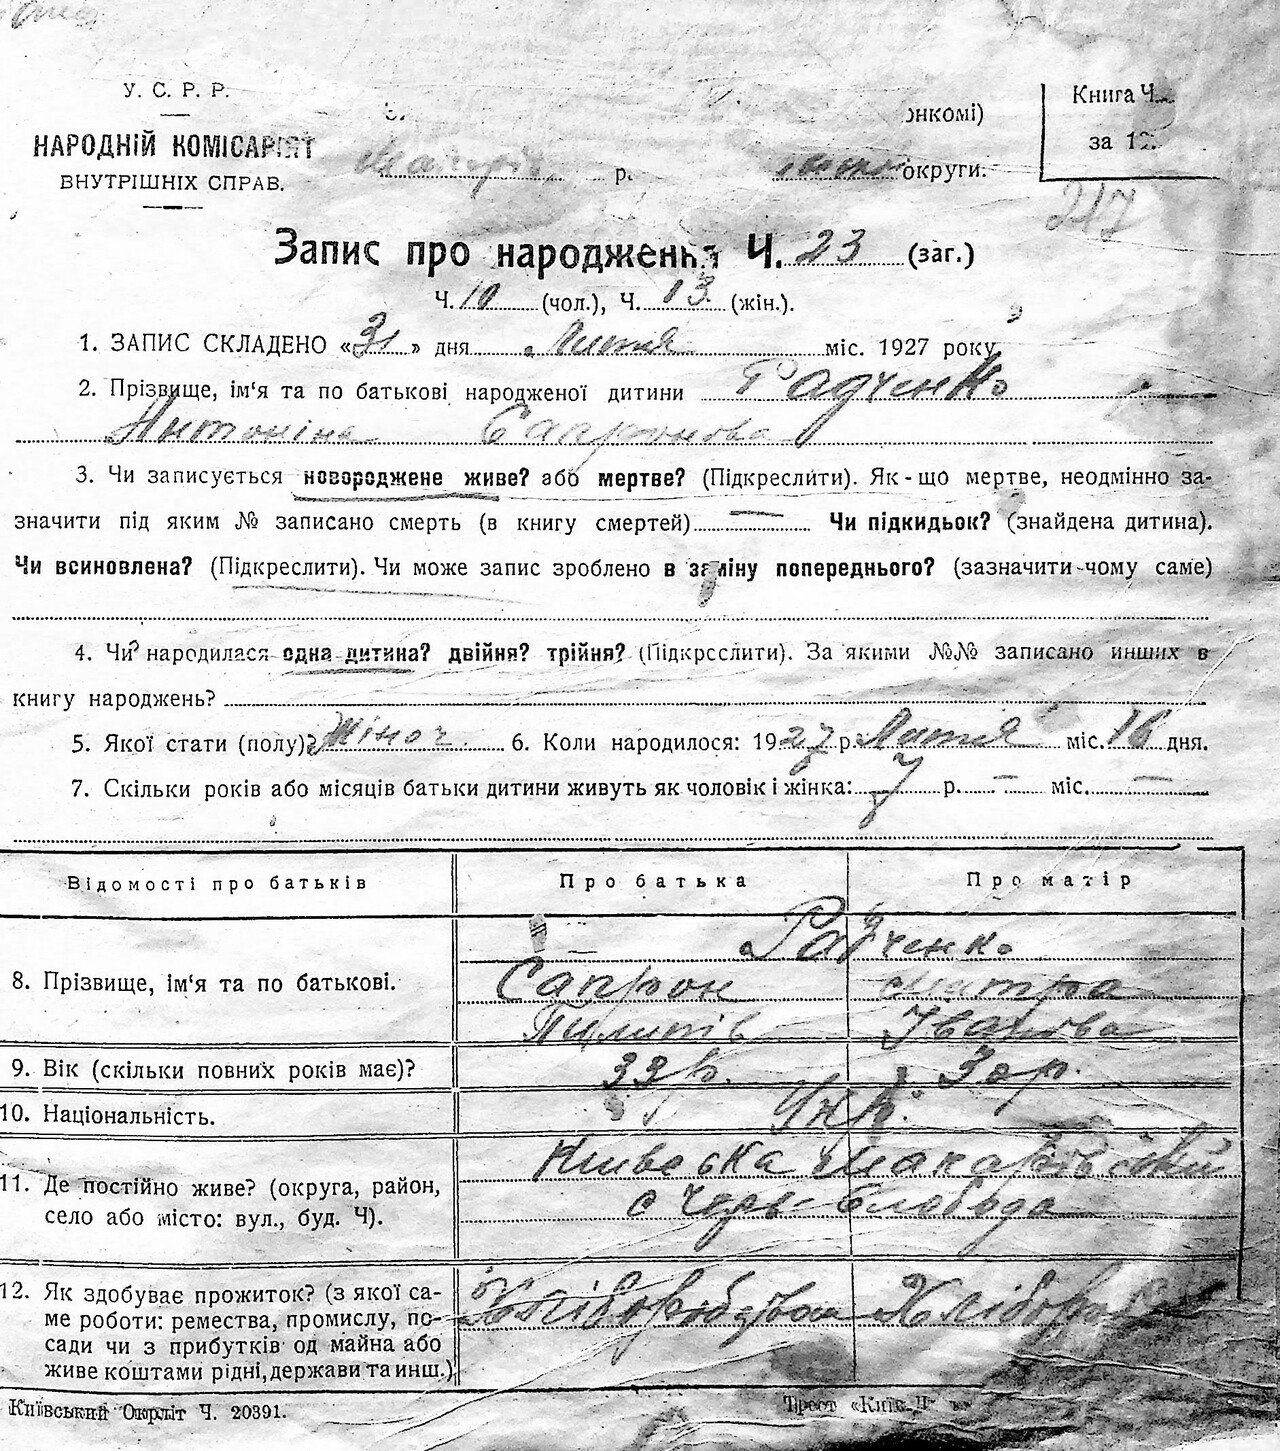 У. С. Р. Р.
НАРОДНІЙ КОМІСАРІЯТ
ВНУТРІШНІХ СПРАВ.
онкомі)
р. округи.
Книга Ч.
за 1
217
Запис про народження Ч. 23 (заг.)
Ч. 10 (чол.), Ч. 13 (жін.).
1. ЗАПИС СКЛАДЕНО «31» дня Липня міс. 1927 року
2. Прізвище, ім'я та по батькові народженої дитини Радченко
Антоніна Сапронова
3. Чи записується новороджене живе? або мертве? (Підкреслити). Як-що мертве, неодмінно за-
значити під яким № записано смерть (в книгу смертей) — Чи підкидьок? (знайдена дитина).
Чи всиновлена? (Підкреслити). Чи може запис зроблено в заміну попереднього? (зазначити чому саме)
4. Чи народилася одна дитина? двійня? трійня? (Підкреслити). За якими №№ записано инших в
книгу народжень?
5. Якої стати (полу)? Жіноч. 6. Коли народилося: 1927 р. Липня міс. 16 дня.
7. Скільки років або місяців батьки дитини живуть як чоловік і жінка: 7 р. — міс. —
Відомості про батьків Про батька Про матір
Радченко
8. Прізвище, ім'я та по батькові. Сапрон
Пилипів Іванова
9. Вік (скільки повних років має)? 33 р. 30 р.
10. Національність. Укр.
11. Де постійно живе? (округа, район,
село або місто: вул., буд. Ч).
Київська Макарівський
с Черв Слобода
12. Як здобуває прожиток? (з якої са-
ме роботи: ремества, промислу, по-
сади чи з прибутків од майна або
живе коштами рідні, держави та инш.)
Хліборобством Хлібороб
Київський Окрліт Ч. 20391.
Трест «Київ-Д